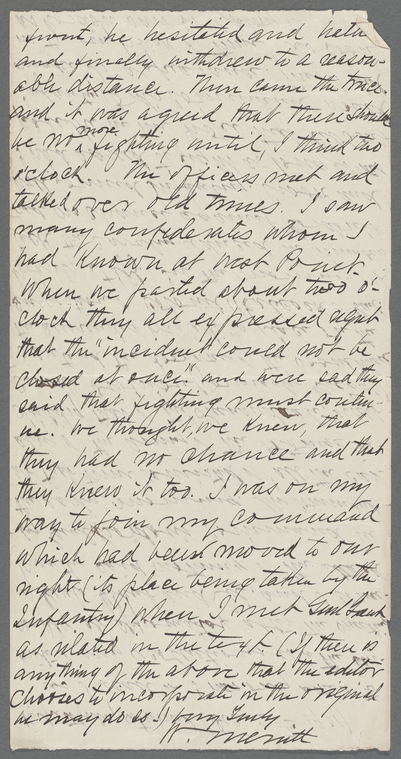 front, he hesitated and
and finally withdrew to a reason-
able distance. Then came the truce
and it was agreed that there should
be no more fighting until, I think two
o'clock. The officers met and
talked over old times. I saw
many confederates whom I
had known at West Point.
When we parted about two o'-
clock they all expressed regret
that the "incident could not be
closed at once." and were sad they
said that fighting must contin-
ue. We thought, we knew, that
they had no chance and that
they knew it too. I was on my
way to join my command
which had been moved to our
right (its place being taken by the
Infantry) when I met Genl Grant
as related in the text. (If there is
anything of the above that the editor
chooses to incorporate in the original
he may do so.) Very Truly
W. Merritt